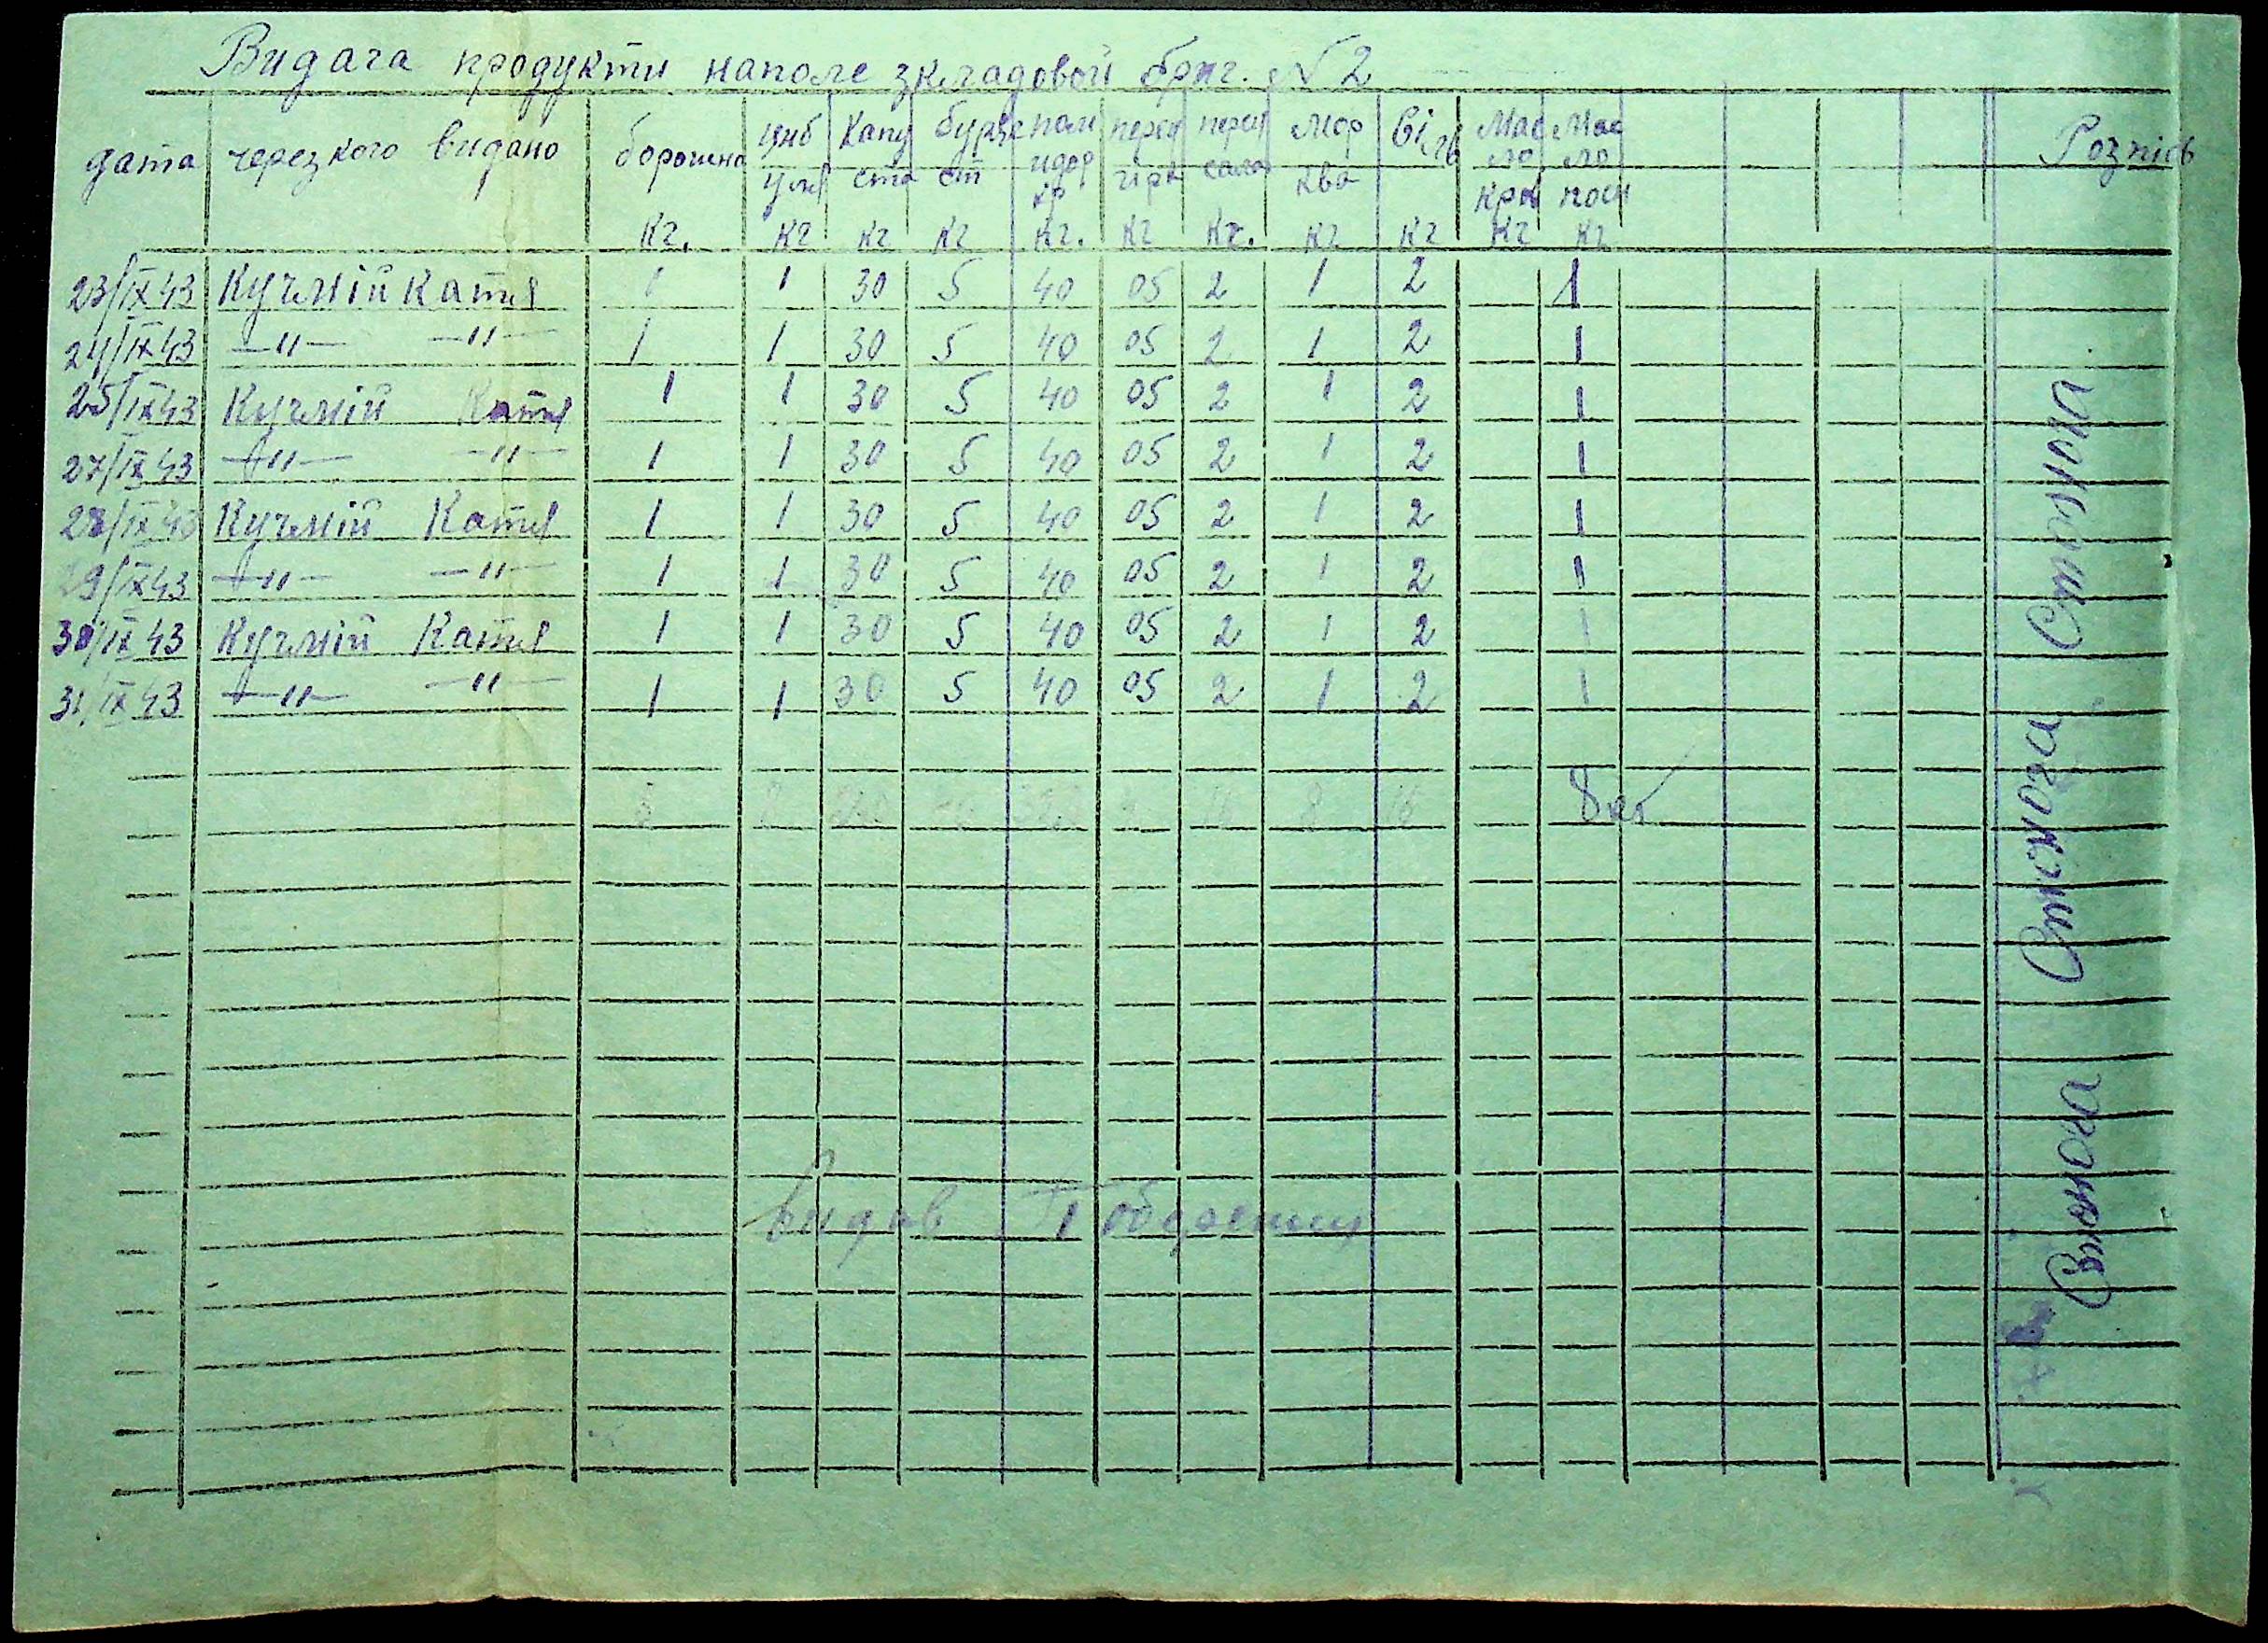 Видача продукти наполе зкладовой бриг. №2
дата через кого видано борошно циб уля капу ста буряк ст пом идор ір перец гірк перец сала мор ква сіль мас ло кро мас ло посн Розпісь
кг. кг кг кг кг. кг кг. кг кг кг кг
23/IX 43 Кучмій Катя 1 1 30 5 40 05 2 1 2 1
24/IX 43 —"— —"— 1 1 30 5 40 05 2 1 2 1
25/IX 43 Кучмій Катя 1 1 30 5 40 05 2 1 2 1
27/IX 43 —"— —"— 1 1 30 5 40 05 2 1 2 1
28/IX 43 Кучмій Катя 1 1 30 5 40 05 2 1 2 1
29/IX 43 —"— —"— 1 1 30 5 40 05 2 1 2 1
30/IX 43 Кучмій Катя 1 1 30 5 40 05 2 1 2 1
31/IX 43 —"— —"— 1 1 30 5 40 05 2 1 2 1
8 8 240 320 16 8 16 8 кг
видав